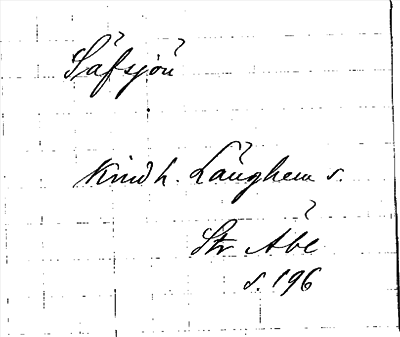 Säfsjön
Kind h. Länghem s.
Str Åbc
s. 196